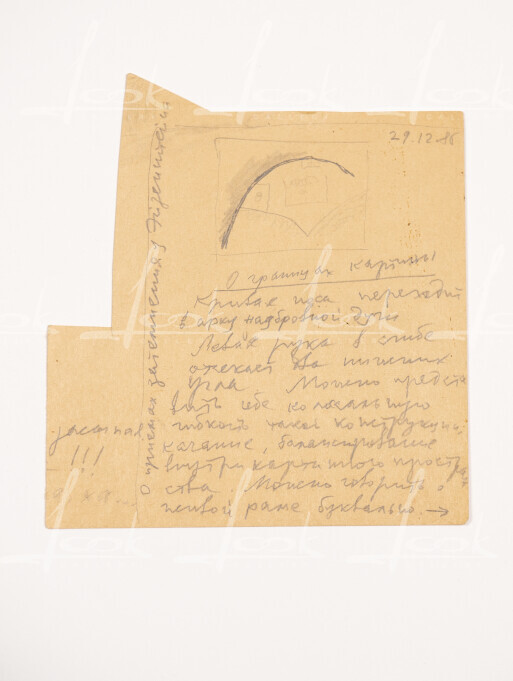 29.12.86
О границах картины
Кривая носа переходит
в арку надбровной дуги
Левая рука в сгибе
отсекает два нижних
угла Можно предста
вить себе колоссальную
гибкость такой конструкции,
качание, балансирование
внутри картинного простран
ства. Можно говорить о
живой раме буквально. →
О приемах затемнения у Эйзенштейна
!!!